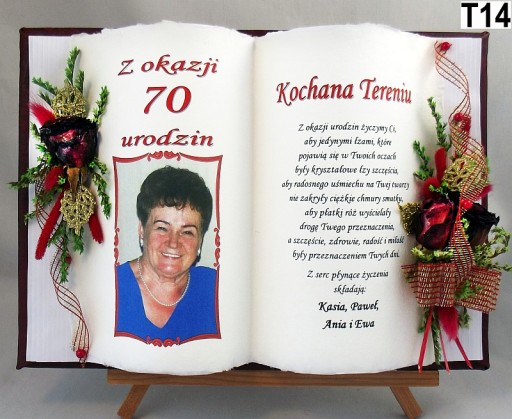 T14
Z okazji
70
urodzin
Kochana Tereniu
Z okazji urodzin życzymy Ci,
aby jedynymi łzami, które
pojawią się w Twoich oczach
były kryształowe łzy szczęścia,
aby radosnego uśmiechu na Twej twarzy
nie zakryły ciężkie chmury smutku,
aby płatki róż wyścielały
drogę Twego przeznaczenia,
a szczęście, zdrowie, radość i miłość
były przeznaczeniem Twych dni.
Z serc płynące życzenia
składają:
Kasia, Paweł,
Ania i Ewa